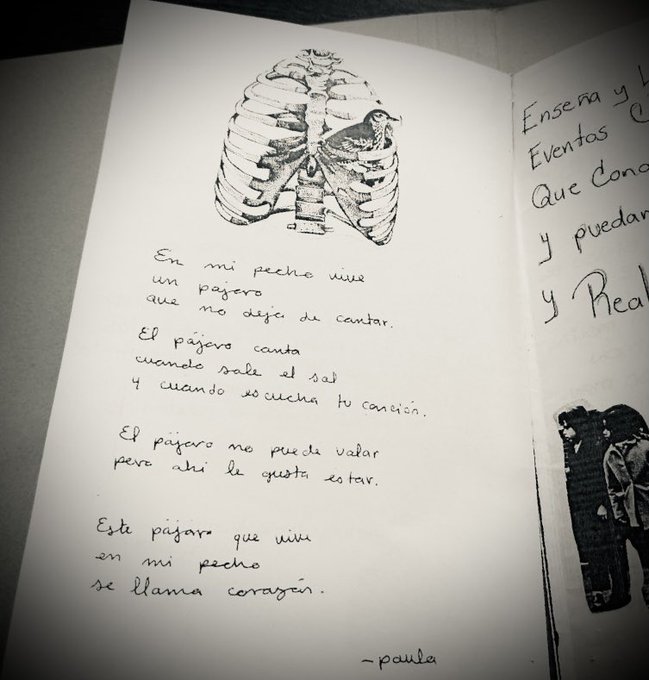 En mi pecho vive
un pájaro
que no deja de cantar.
El pájaro canta
cuando sale el sol
y cuando escucha tu canción.
El pájaro no puede volar
pero ahí le gusta estar.
Este pájaro que vive
en mi pecho
se llama corazón.
- paula
Enseña y
Eventos
Que
y puedan
y